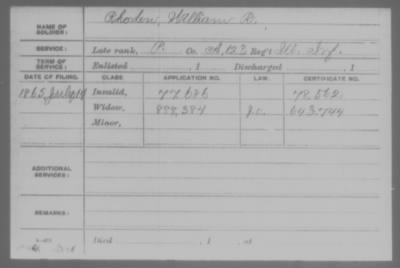 NAME OF SOLDIER: Rhoden, William R.
SERVICE: Late rank, P. Co. A, 123 Reg't Ill. Inf.
TERM OF SERVICE: Enlisted , 1 Discharged , 1
DATE OF FILING. CLASS. APPLICATION NO. LAW. CERTIFICATE NO.
1865, July 18 Invalid, 77686 78,562
Widow, 888,384 643,744
Minor,
ADDITIONAL SERVICES:
REMARKS:
Died , 1 , at